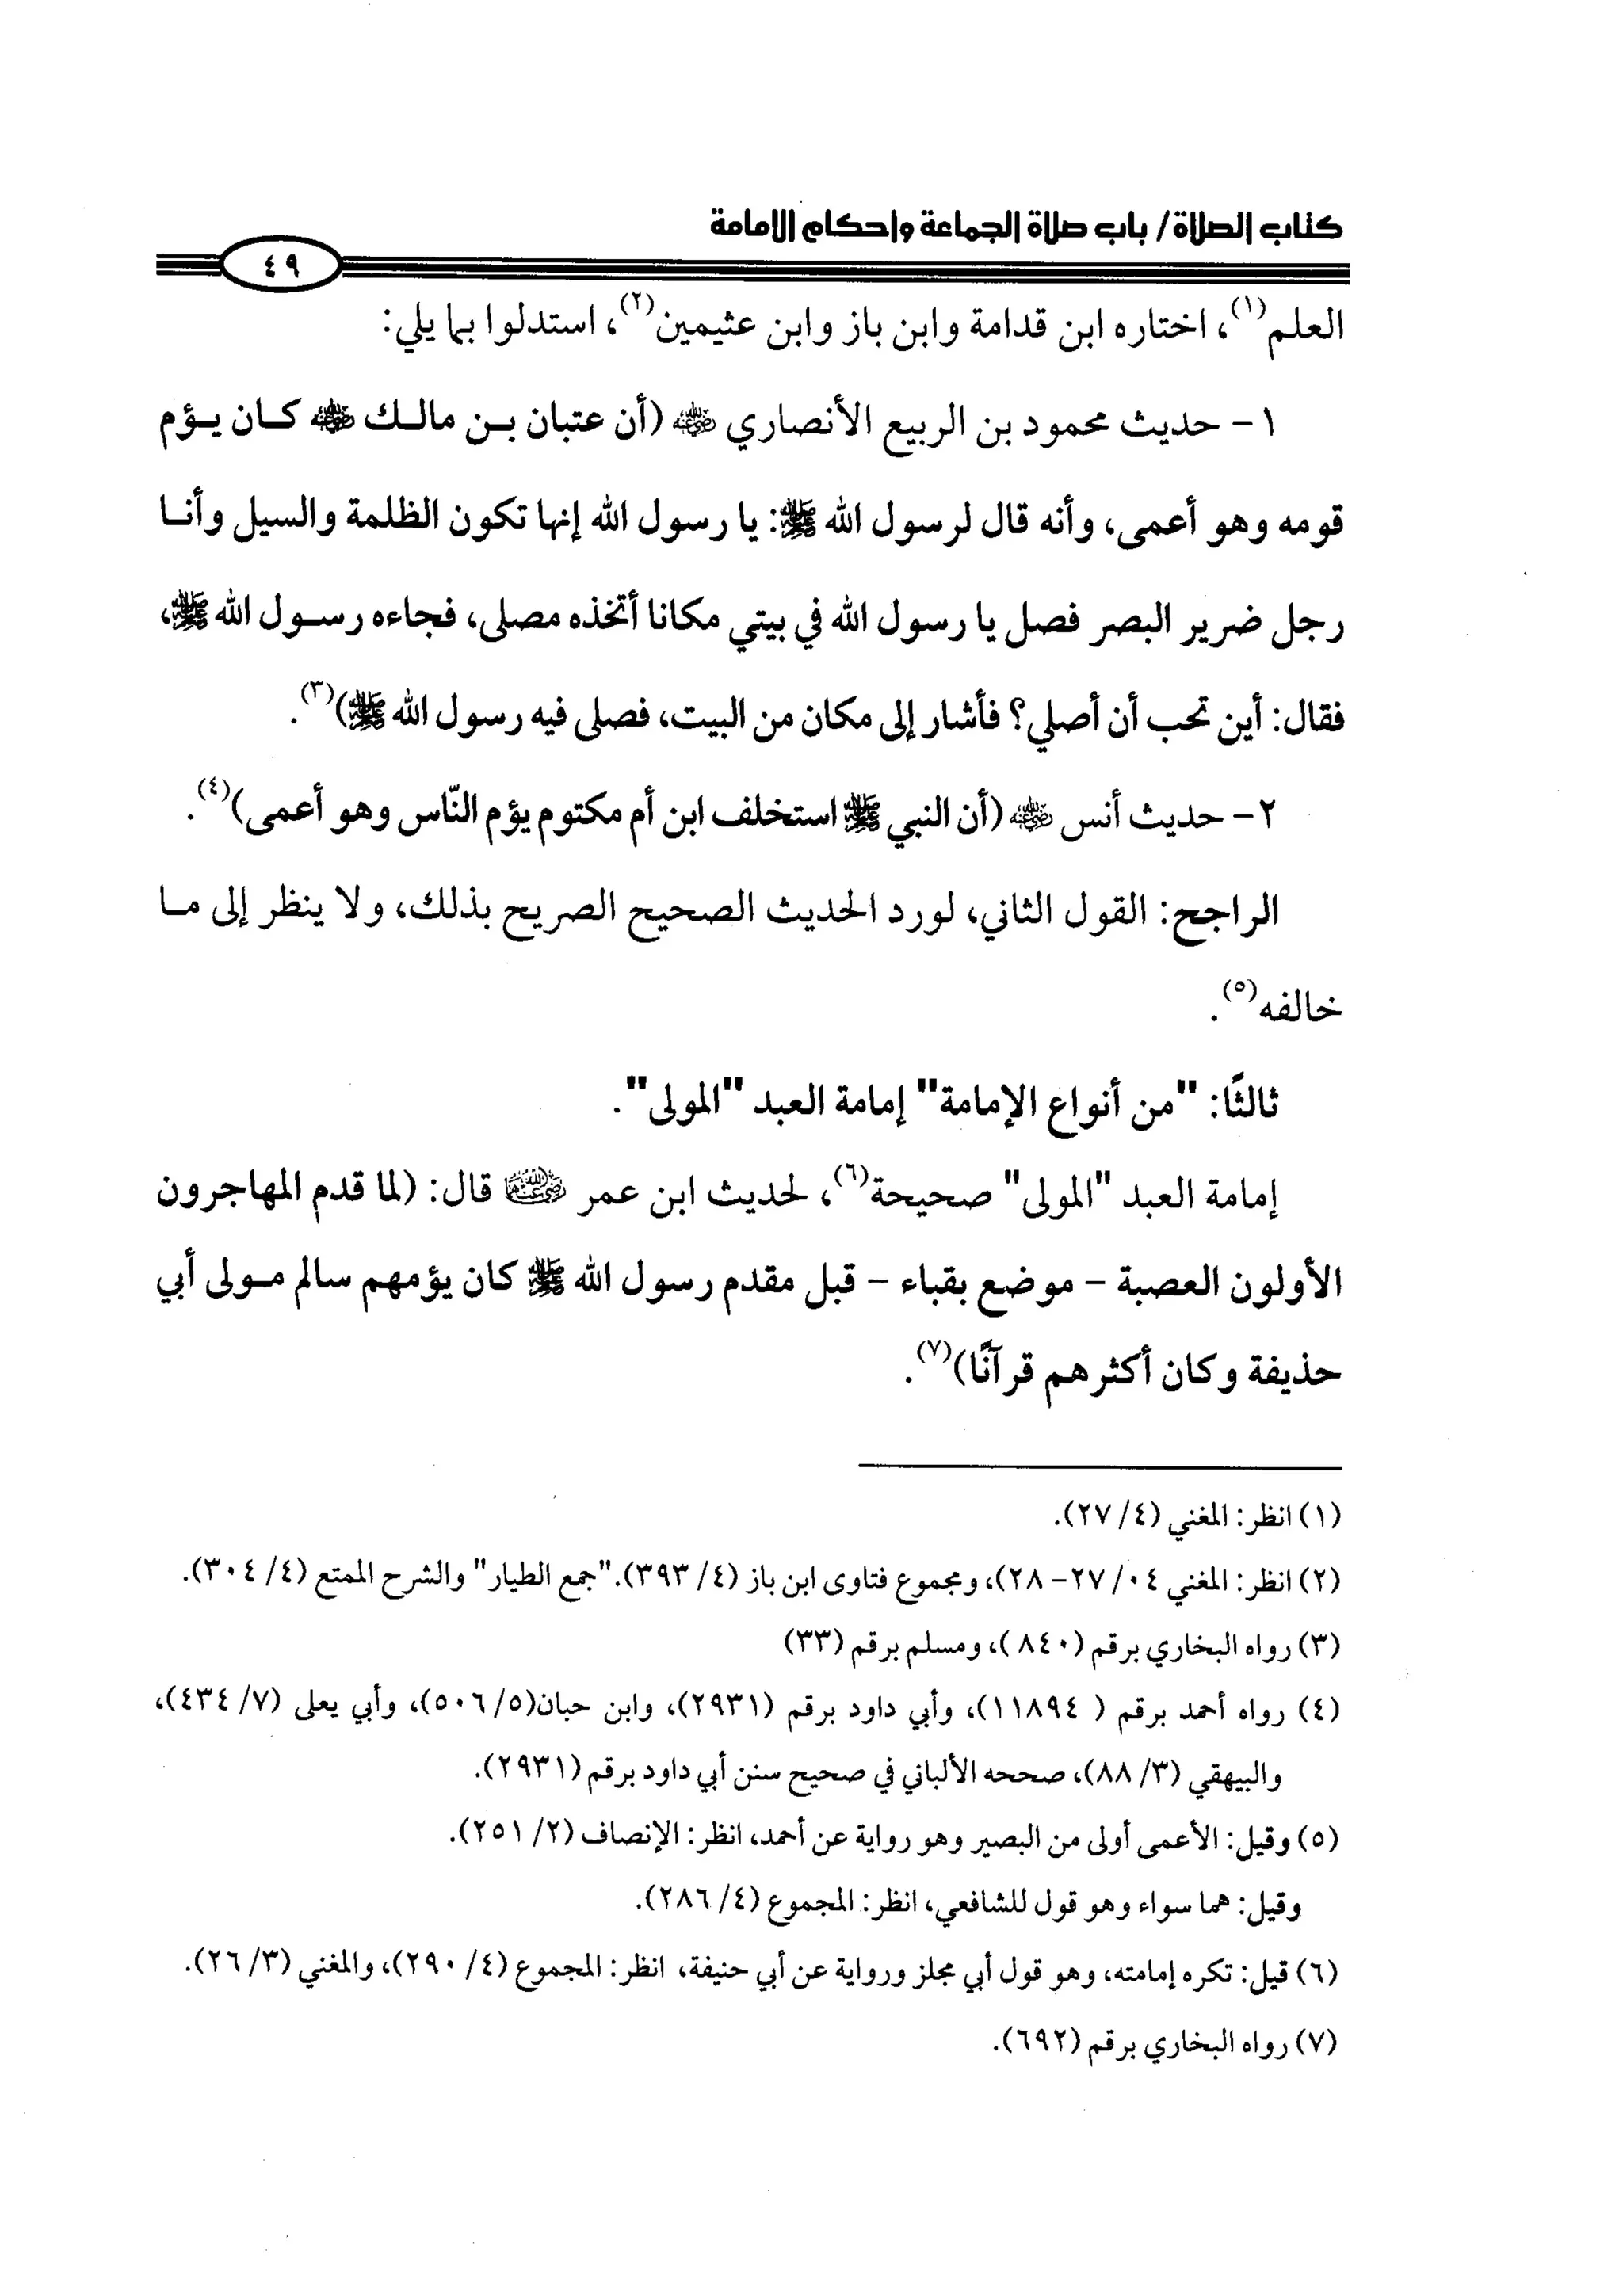 كتاب الصلاة/ باب صلاة الجماعة وأحكام الإمامة
٤٩
العلم(١)، اختاره ابن قدامة وابن باز وابن عثيمين(٢)، استدلوا بما يلي:
١- حديث محمود بن الربيع الأنصاري رضي الله عنه (أن عتبان بـن مالـك رضي الله عنه كـان يـؤم
قومه وهو أعمى، وأنه قال لرسول الله ﷺ: يا رسول الله إنها تكون الظلمة والسيل وأنـا
رجل ضرير البصر فصل يا رسول الله في بيتي مكانا أتخذه مصلى، فجاءه رسـول الله ﷺ،
فقال: أين تحب أن أصلي؟ فأشار إلى مكان من البيت، فصلى فيه رسول الله ﷺ)(٣).
٢- حديث أنس رضي الله عنه (أن النبي ﷺ استخلف ابن أم مكتوم يؤم النّاس وهو أعمى)(٤).
الراجح: القول الثاني، لورد الحديث الصحيح الصريح بذلك، ولا ينظر إلى مـا
خالفه(٥).
ثالثًا: "من أنواع الإمامة" إمامة العبد "المولى".
إمامة العبد "المولى" صحيحة(٦)، لحديث ابن عمر رضي الله عنهما قال: (لما قدم المهاجرون
الأولون العصبة - موضع بقباء - قبل مقدم رسول الله ﷺ كان يؤمهم سالم مـولى أبي
حذيفة وكان أكثرهم قرآنًا)(٧).
(١) انظر: المغني (٤/ ٢٧).
(٢) انظر: المغني ٠٤/ ٢٧-٢٨)، ومجموع فتاوى ابن باز (٤/ ٣٩٣)."جمع الطيار" والشرح الممتع (٤/ ٣٠٤).
(٣) رواه البخاري برقم (٨٤٠)، ومسلم برقم (٣٣)
(٤) رواه أحمد برقم ( ١١٨٩٤)، وأبي داود برقم (٢٩٣١)، وابن حبان(٥/ ٥٠٦)، وأبي يعلى (٧/ ٤٣٤)،
والبيهقي (٣/ ٨٨)، صححه الألباني في صحيح سنن أبي داود برقم (٢٩٣١).
(٥) وقيل: الأعمى أولى من البصير وهو رواية عن أحمد، انظر: الإنصاف (٢/ ٢٥١).
وقيل: هما سواء وهو قول للشافعي، انظر: المجموع (٤/ ٢٨٦).
(٦) قيل: تكره إمامته، وهو قول أبي مجلز ورواية عن أبي حنيفة، انظر: المجموع (٤/ ٢٩٠)، والمغني (٣/ ٢٦).
(٧) رواه البخاري برقم (٦٩٢).